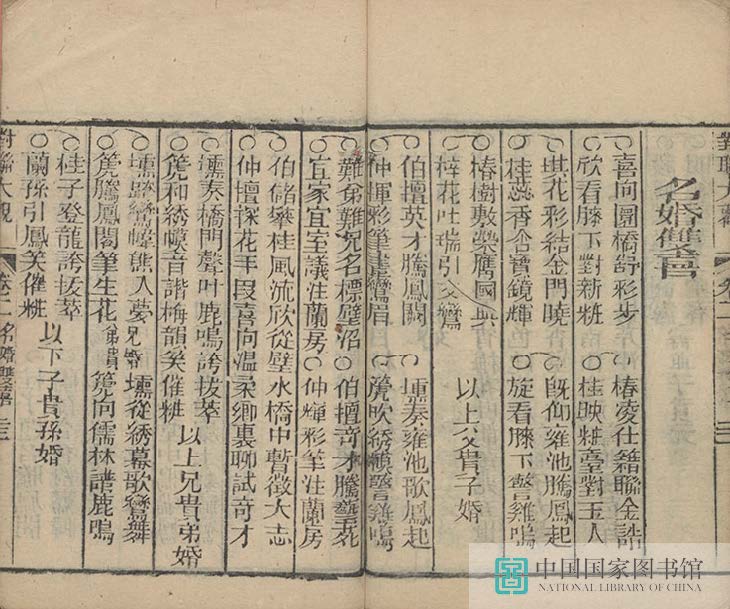 名婚雙喜
喜向園橋舒彩步 椿凌仕籍聯金誥
欣看膝下對新粧 桂映粧臺對玉人
琪花彩結金門曉 既仰雍池騰鳳起
桂蕊香含寶鏡輝 旋看膝下警雞鳴
椿樹敷榮膺國典
梓花吐瑞引文鸞 以上父貴子婚
伯擅英才騰鳳闕 壎奏雍池歌鳳起
仲揮彩筆畫鸞眉 篪吹綉幙警雞鳴
難弟難兄名標壁沼 伯擅奇才騰藝苑
宜家宜室議注蘭房 仲輝彩筆注蘭房
伯儲攀桂風流欣從璧水橋中暫徵大志
仲擅探花手段喜向溫柔鄉裏聊試奇才
壎奏橋門聲叶鹿鳴誇拔萃
篪和綉幙音諧梅韻笑催粧 以上兄貴弟婚
壎歸鸞幃熊入夢 兄婚 壎從綉幕歌鸞舞
篪騰鳳閣筆生花 弟貴 篪向儒林譜鹿鳴
桂子登龍誇拔萃
蘭孫引鳳笑催粧 以下子貴孫婚
對聯大觀 卷二 名婚雙喜
中国国家图书馆
NATIONAL LIBRARY OF CHINA